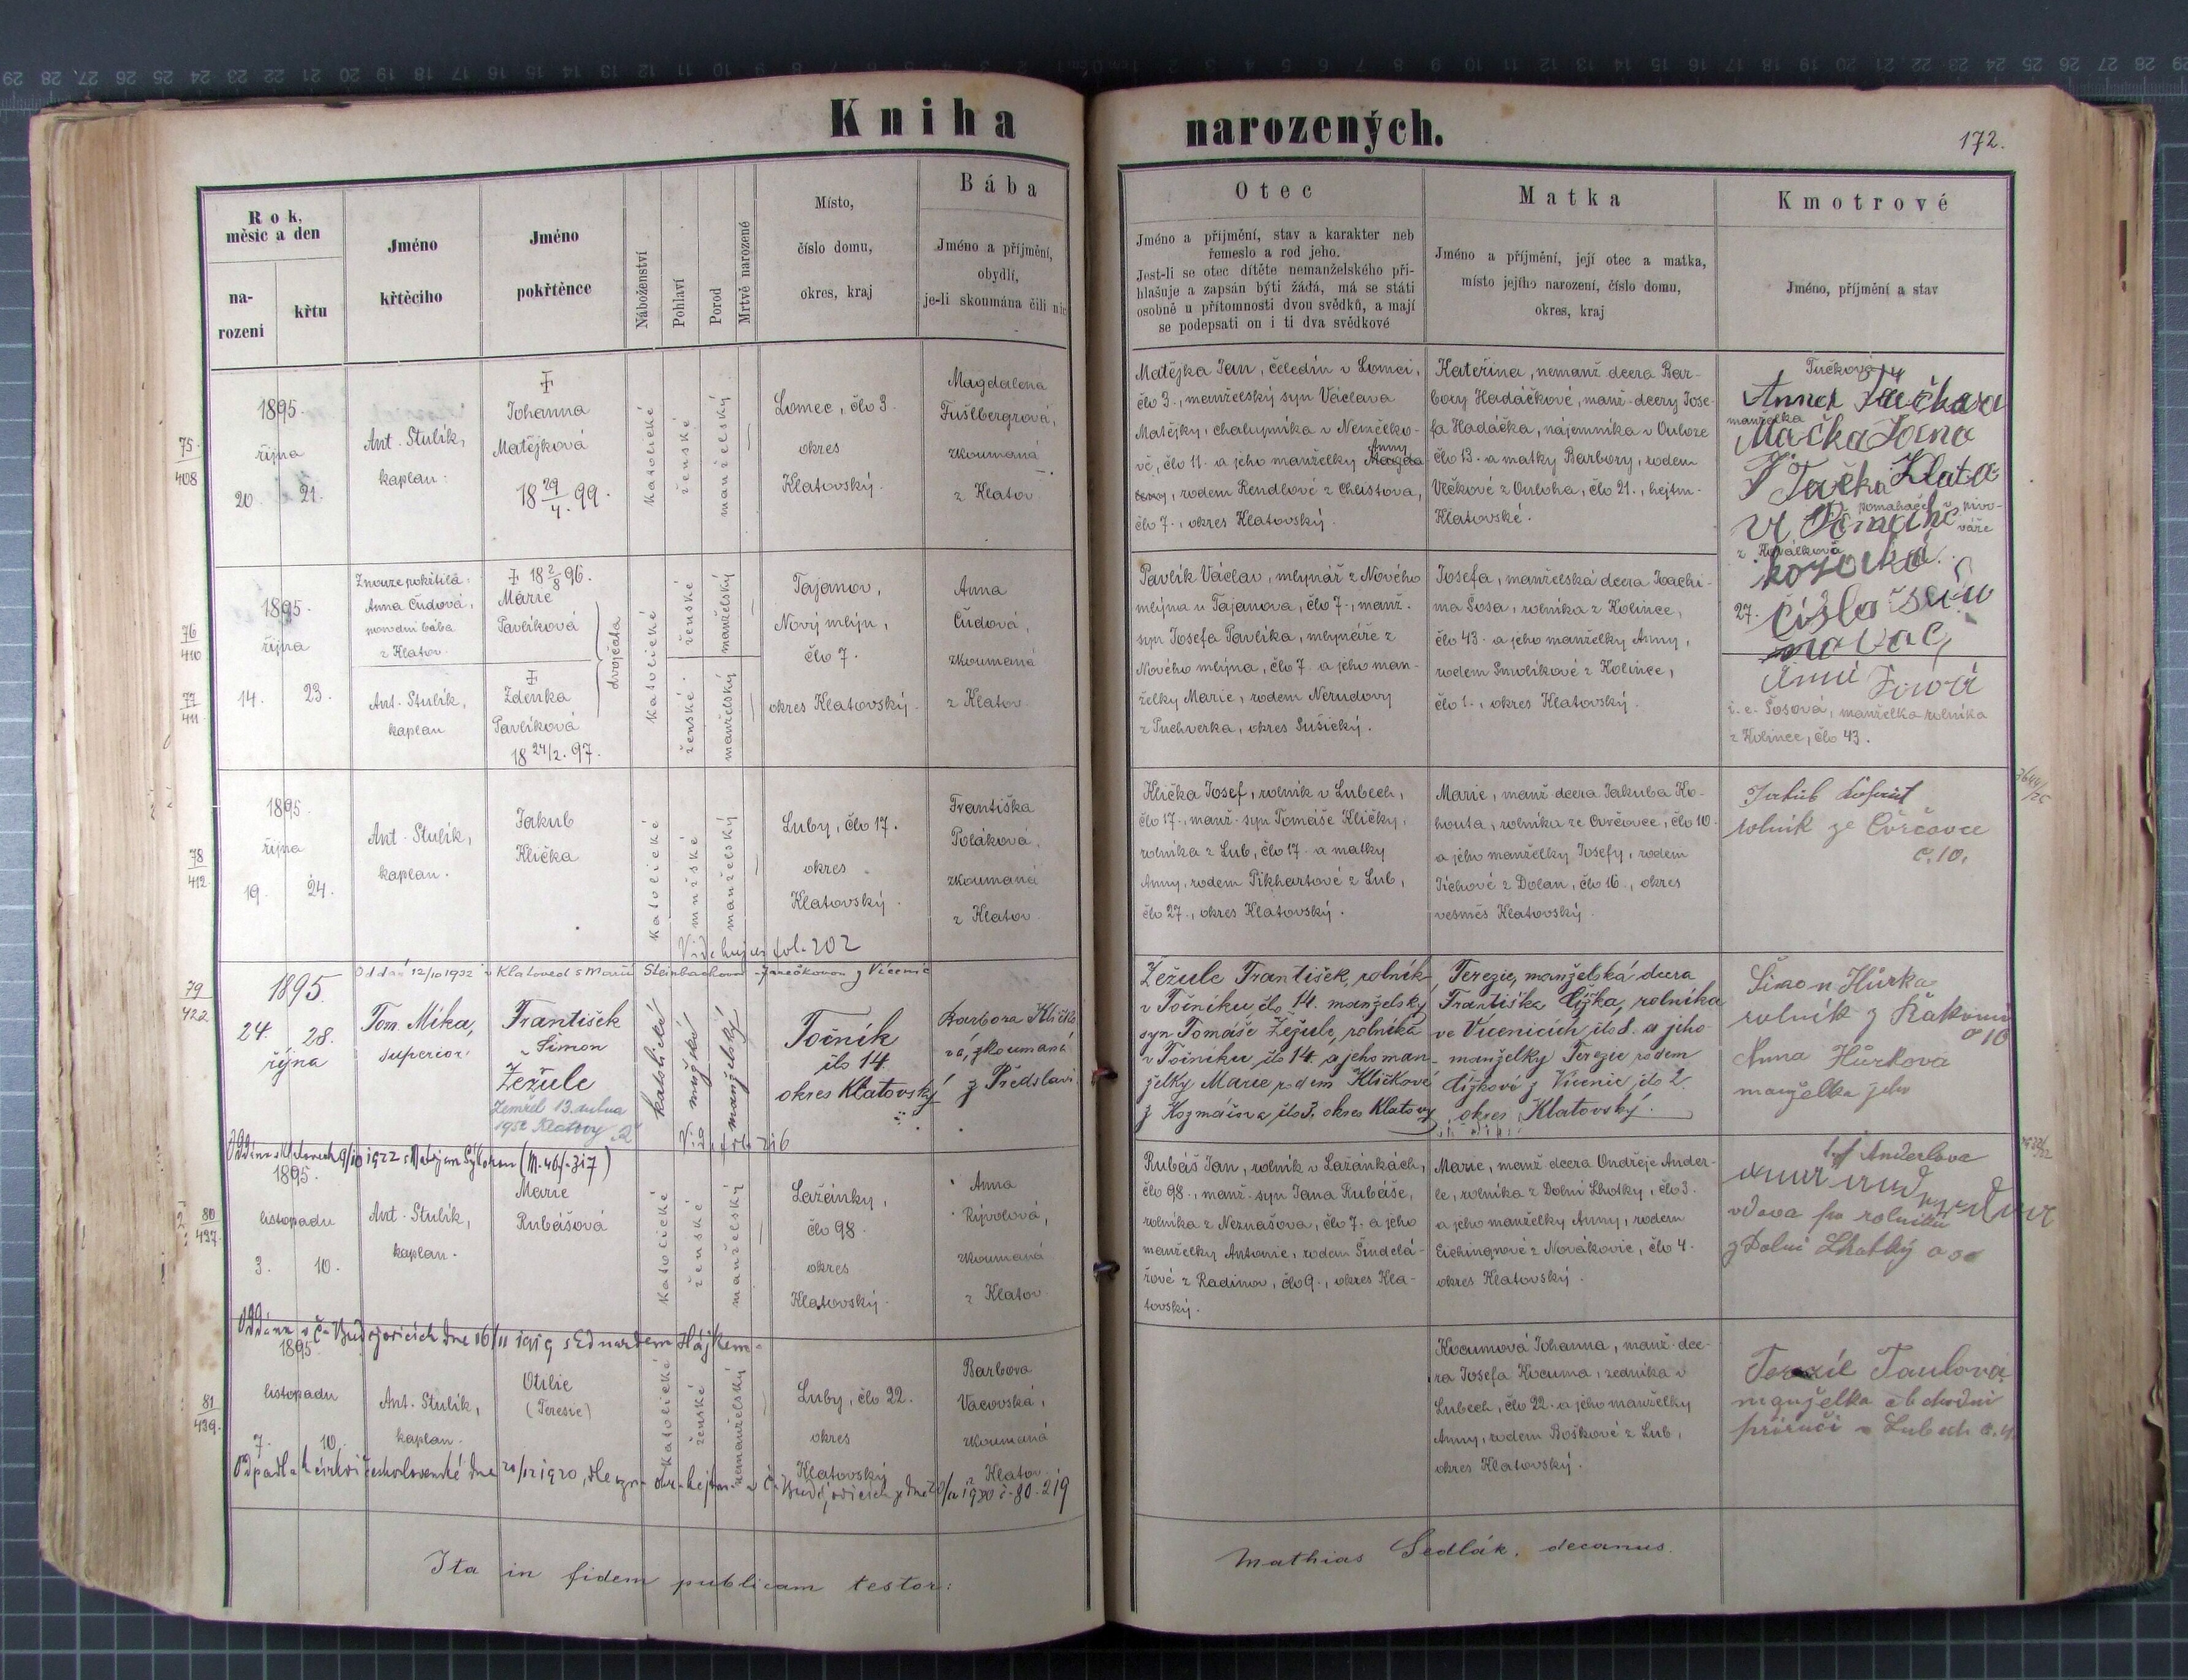 Kniha narozených.
172.
Rok, měsíc a den
narození
křtu
Jméno křtěcího
Jméno pokřtěnce
Náboženství
Pohlaví
Porod
Mrtvě narozené
Místo,
číslo domu,
okres, kraj
Bába
Jméno a příjmění,
obydlí,
je-li skoumána čili nic
Otec
Jméno a příjmění, stav a karakter neb
řemeslo a rod jeho.
Jest-li se otec dítěte nemanželského při-
hlašuje a zapsán býti žádá, má se státi
osobně u přítomnosti dvou svědků, a mají
se podepsati on i ti dva svědkové
Matka
Jméno a příjmění, její otec a matka,
místo jejího narození, číslo domu,
okres, kraj
Kmotrové
Jméno, příjmění a stav
75
408
1895.
října
20. 21.
Ant. Stulík,
kaplan.
Johanna
Matějková
18 29/4. 99.
katolické
ženské
manželský
Lomec, člo 3.
okres
Klatovský.
Magdalena
Fušlbergrová,
zkoumaná
z Klatov
Matějka Jan, čeledín v Lomci,
člo 3., manželský syn Václava
Matějky, chalupníka v Němčelko-
vě, člo 11. a jeho manželky Anny
, rodem Rendlové z Chustova,
člo 7., okres Klatovský.
Kateřina, nemanž. dcera Bar-
bory Hadáčkové, manž. dcery Jose-
fa Hadáčka, nájemníka v Ouloze
člo 13. a matky Barbory, rodem
Vlčkové z Ouloha, člo 21., hejtm.
Klatovské.
Tučková
Anna
manželka
pomahače
z Kováčková
27.
76
410
77
411
1895.
října
14. 23.
Znouze pokřtila:
Anna Čudová,
porodní bába
z Klatov.
Ant. Stulík,
kaplan
18 2/8 96.
Marie
Pavlíková
Zdenka
Pavlíková
18 24/2. 97.
dvojčata
katolické
ženské
manželský
ženské.
manželský
Tajanov,
Nový mlýn,
člo 7.
okres Klatovský.
Anna
Čudová,
zkoumaná
z Klatov
Pavlík Václav, mlynář z Nového
mlýna u Tajanova, člo 7., manž.
syn Josefa Pavlíka, mlynáře z
Nového mlýna, člo 7. a jeho man-
želky Marie, rodem Nerudovy
z Puchverka, okres Sušický.
Josefa, manželská dcera Joachi-
ma Šosa, rolníka z Kolince,
člo 43. a jeho manželky Anny,
rodem Smolíkové z Kolince,
člo 1., okres Klatovský.
i. e. Šosová, manželka rolníka
z Kolince, člo 43.
78
412
1895.
října
19. 24.
Ant. Stulík,
kaplan.
Jakub
Klička
katolické
mužské
manželský
Luby, člo 17.
okres
Klatovský.
Františka
Poláková,
zkoumaná
z Klatov
Klička Josef, rolník v Lubech,
člo 17., manž. syn Tomáše Kličky,
rolníka z Lub, člo 17. a matky
Anny, rodem Pikhartové z Lub,
člo 27., okres Klatovský.
Marie, manž. dcera Jakuba Ko-
houta, rolníka ze Cvrčovce, člo 10.
a jeho manželky Josefy, rodem
Jíchové z Dolan, člo 16., okres
vesměs Klatovský.
Jakub
rolník ze Cvrčovce
č. 10.
fol. 202
Oddán 12/10 1932 v Klatovech s Marií
79
422
1895.
24. 28.
října
Tom. Mika,
superior
František
Šimon
Žežule
Zemřel 13. dubna
1952 Klatovy
katolické
mužské
manželský
Točník
člo 14.
okres Klatovský
Barbora
zkoumaná
z Předslavi
Žežule František, rolník
v Točníku, člo 14. manželský
syn Tomáše Žežule, rolníka
v Točníku, člo 14 a jeho man-
želky Marie rodem Kličkové
z Kozmášina, člo 3, okres Klatovy
Terezie, manželská dcera
Františka Čížka, rolníka
ve Vícenicích, člo 8. a jeho
manželky Terezie rodem
Čížkové z Vícenic, člo 2.
okres Klatovský.
Šimon Hůrka
rolník z
Anna Hůrková
manželka jeho
Oddána v Klatovech 9/10 1922 s Matějem Sýkorou (M. 46. f. 317)
80
437
1895.
listopadu
3. 10.
Ant. Stulík,
kaplan.
Marie
Rubášová
katolické
ženské
manželský
Lažánky,
člo 98
okres
Klatovský.
Anna
Rývolová,
zkoumaná
z Klatov
Rubáš Jan, rolník v Lažánkách,
člo 98., manž. syn Jana Rubáše,
rolníka z Neznašova, člo 7. a jeho
manželky Antonie, rodem Šindelá-
řové z Radinov, člo 9., okres Kla-
tovský.
Marie, manž. dcera Ondřeje Ander-
le, rolníka z Dolní Lhotky, člo 3.
a jeho manželky Anny, rodem
Eichingrové z Novákovic, člo 4.
okres Klatovský.
Anderlova
vdova po rolníku
z Dolní Lhotky
Oddána v Č. Budějovicích dne 16/11 1919 s Eduardem Hájkem.
81
439.
1895.
listopadu
7. 10.
Ant. Stulík,
kaplan.
Otilie
(Teresie)
katolické
ženské
nemanželský
Luby, člo 22.
okres
Klatovský
Barbora
Vacovská,
zkoumaná
z Klatov
Kocumová Johanna, manž. dce-
ra Josefa Kocuma, zedníka v
Lubech, člo 22. a jeho manželky
Anny, rodem Boškové z Lub,
okres Klatovský.
Terezie Taulová
manželka obchodní
příručí v Lubech
Odpadla k církvi československé dne
Ita in fidem publicam testor:
Mathias Sedlák, decanus.